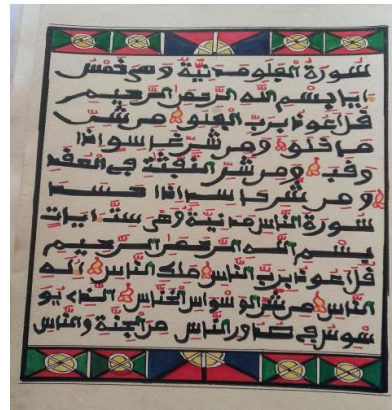 سُورَةُ الْفَلَوِ مَدَنِيَّةٌ وَهِيَ خَمْسُ
ءَايَاتٍ بِسْمِ اللَّهِ الرَّحْمَٰنِ الرَّحِيمِ
قُلْ أَعُوذُ بِرَبِّ الْفَلَقِ مِن شَرِّ
مَا خَلَقَ وَمِن شَرِّ غَاسِقٍ إِذَا
وَقَبَ وَمِن شَرِّ النَّفَّٰثَٰتِ فِي الْعُقَدِ
وَمِن شَرِّ حَاسِدٍ إِذَا حَسَدَ
سُورَةُ النَّاسِ مَدَنِيَّةٌ وَهِيَ سِتُّ ءَايَاتٍ
بِسْمِ اللَّهِ الرَّحْمَٰنِ الرَّحِيمِ
قُلْ أَعُوذُ بِرَبِّ النَّاسِ مَلِكِ النَّاسِ إِلَٰهِ
النَّاسِ مِن شَرِّ الْوَسْوَاسِ الْخَنَّاسِ الَّذِي يُوَ
سْوِسُ فِي صُدُورِ النَّاسِ مِنَ الْجِنَّةِ وَالنَّاسِ